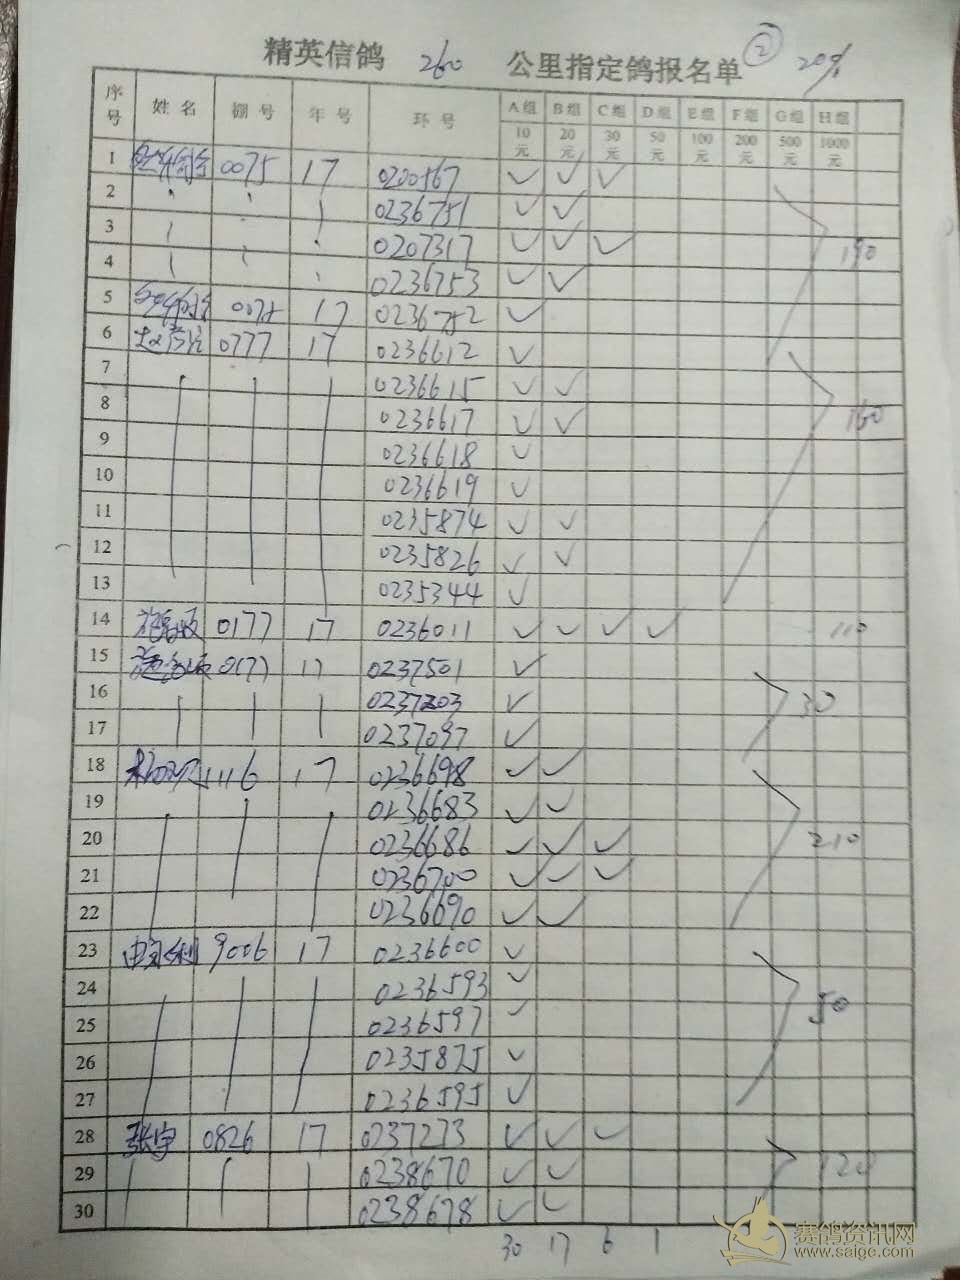 精英信鸽 260 公里指定鸽报名单 ② 20%
序号 姓名 棚号 年号 环号 A组 B组 C组 D组 E组 F组 G组 H组
10元 20元 30元 50元 100元 200元 500元 1000元
1 0075 17 0200567 ✓ ✓ ✓
2 0236751 ✓ ✓
3 0207317 ✓ ✓ ✓ 190
4 0236753 ✓ ✓
5 17 0236752 ✓
6 0777 17 0236612 ✓
7 0236615 ✓ ✓
8 0236617 ✓ ✓ 160
9 0236618 ✓
10 0236619 ✓
11 0235874 ✓ ✓
12 0235826 ✓ ✓
13 0235344 ✓
14 0177 17 0236011 ✓ ✓ ✓ ✓ 110
15 0177 17 0237501 ✓
16 0237203 ✓ 30
17 0237097 ✓
18 1116 17 0236698 ✓ ✓
19 0236683 ✓ ✓
20 0236686 ✓ ✓ ✓ 210
21 0236700 ✓ ✓ ✓
22 0236690 ✓ ✓
23 9006 17 0236600 ✓
24 0236593 ✓
25 0236597 ✓ 50
26 0235875 ✓
27 0236595 ✓
28 张宇 0826 17 0237273 ✓ ✓ ✓
29 0238670 ✓ ✓ 120
30 0238678 ✓ ✓
30 17 6 1
赛鸽资讯网
www.saige.com